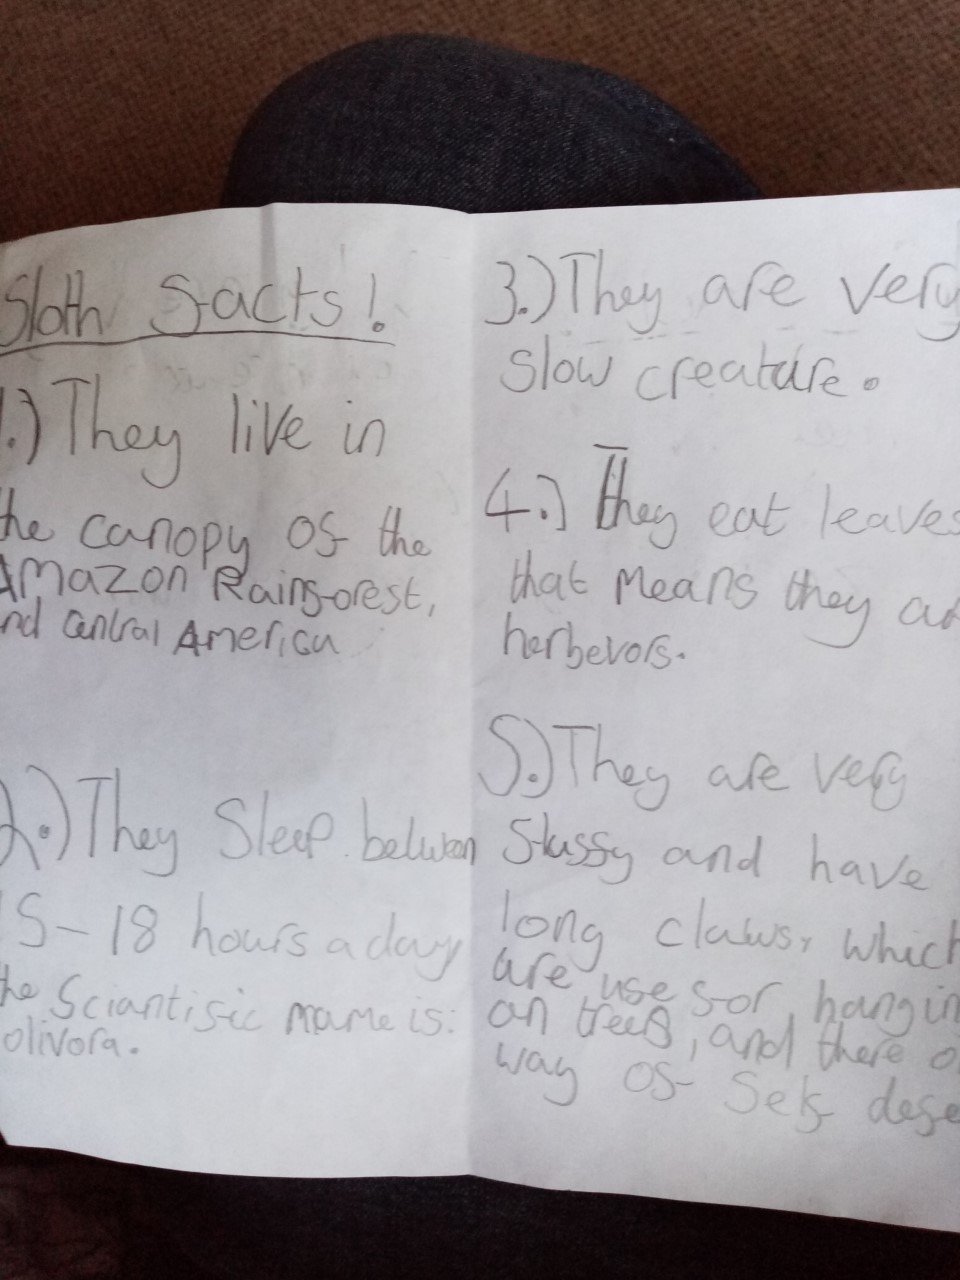 Sloth facts!
1.) They live in
the canopy of the
Amazon Rainforest,
nd Central America
2.) They Sleep between
15-18 hours a day
the Sciantific name is:
olivora.
3.) They are very
slow creature.
4.) They eat leaves
that means they ar
herbevors.
5.) They are very
fluffy and have
long claws, which
are use for hangin
on trees, and there o
way of self defe